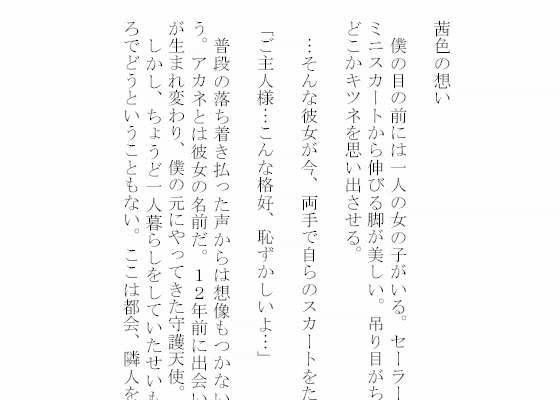 茜色の想い
僕の目の前には一人の女の子がいる。セーラー
ミニスカートから伸びる脚が美しい。吊り目がち
どこかキツネを思い出させる。
…そんな彼女が今、両手で自らのスカートをた
「ご主人様…こんな格好、恥ずかしいよ…」
普段の落ち着き払った声からは想像もつかない
う。アカネとは彼女の名前だ。１２年前に出会い
が生まれ変わり、僕の元にやってきた守護天使。
しかし、ちょうど一人暮らしをしていたせいも
ろでどうということもない。ここは都会、隣人を